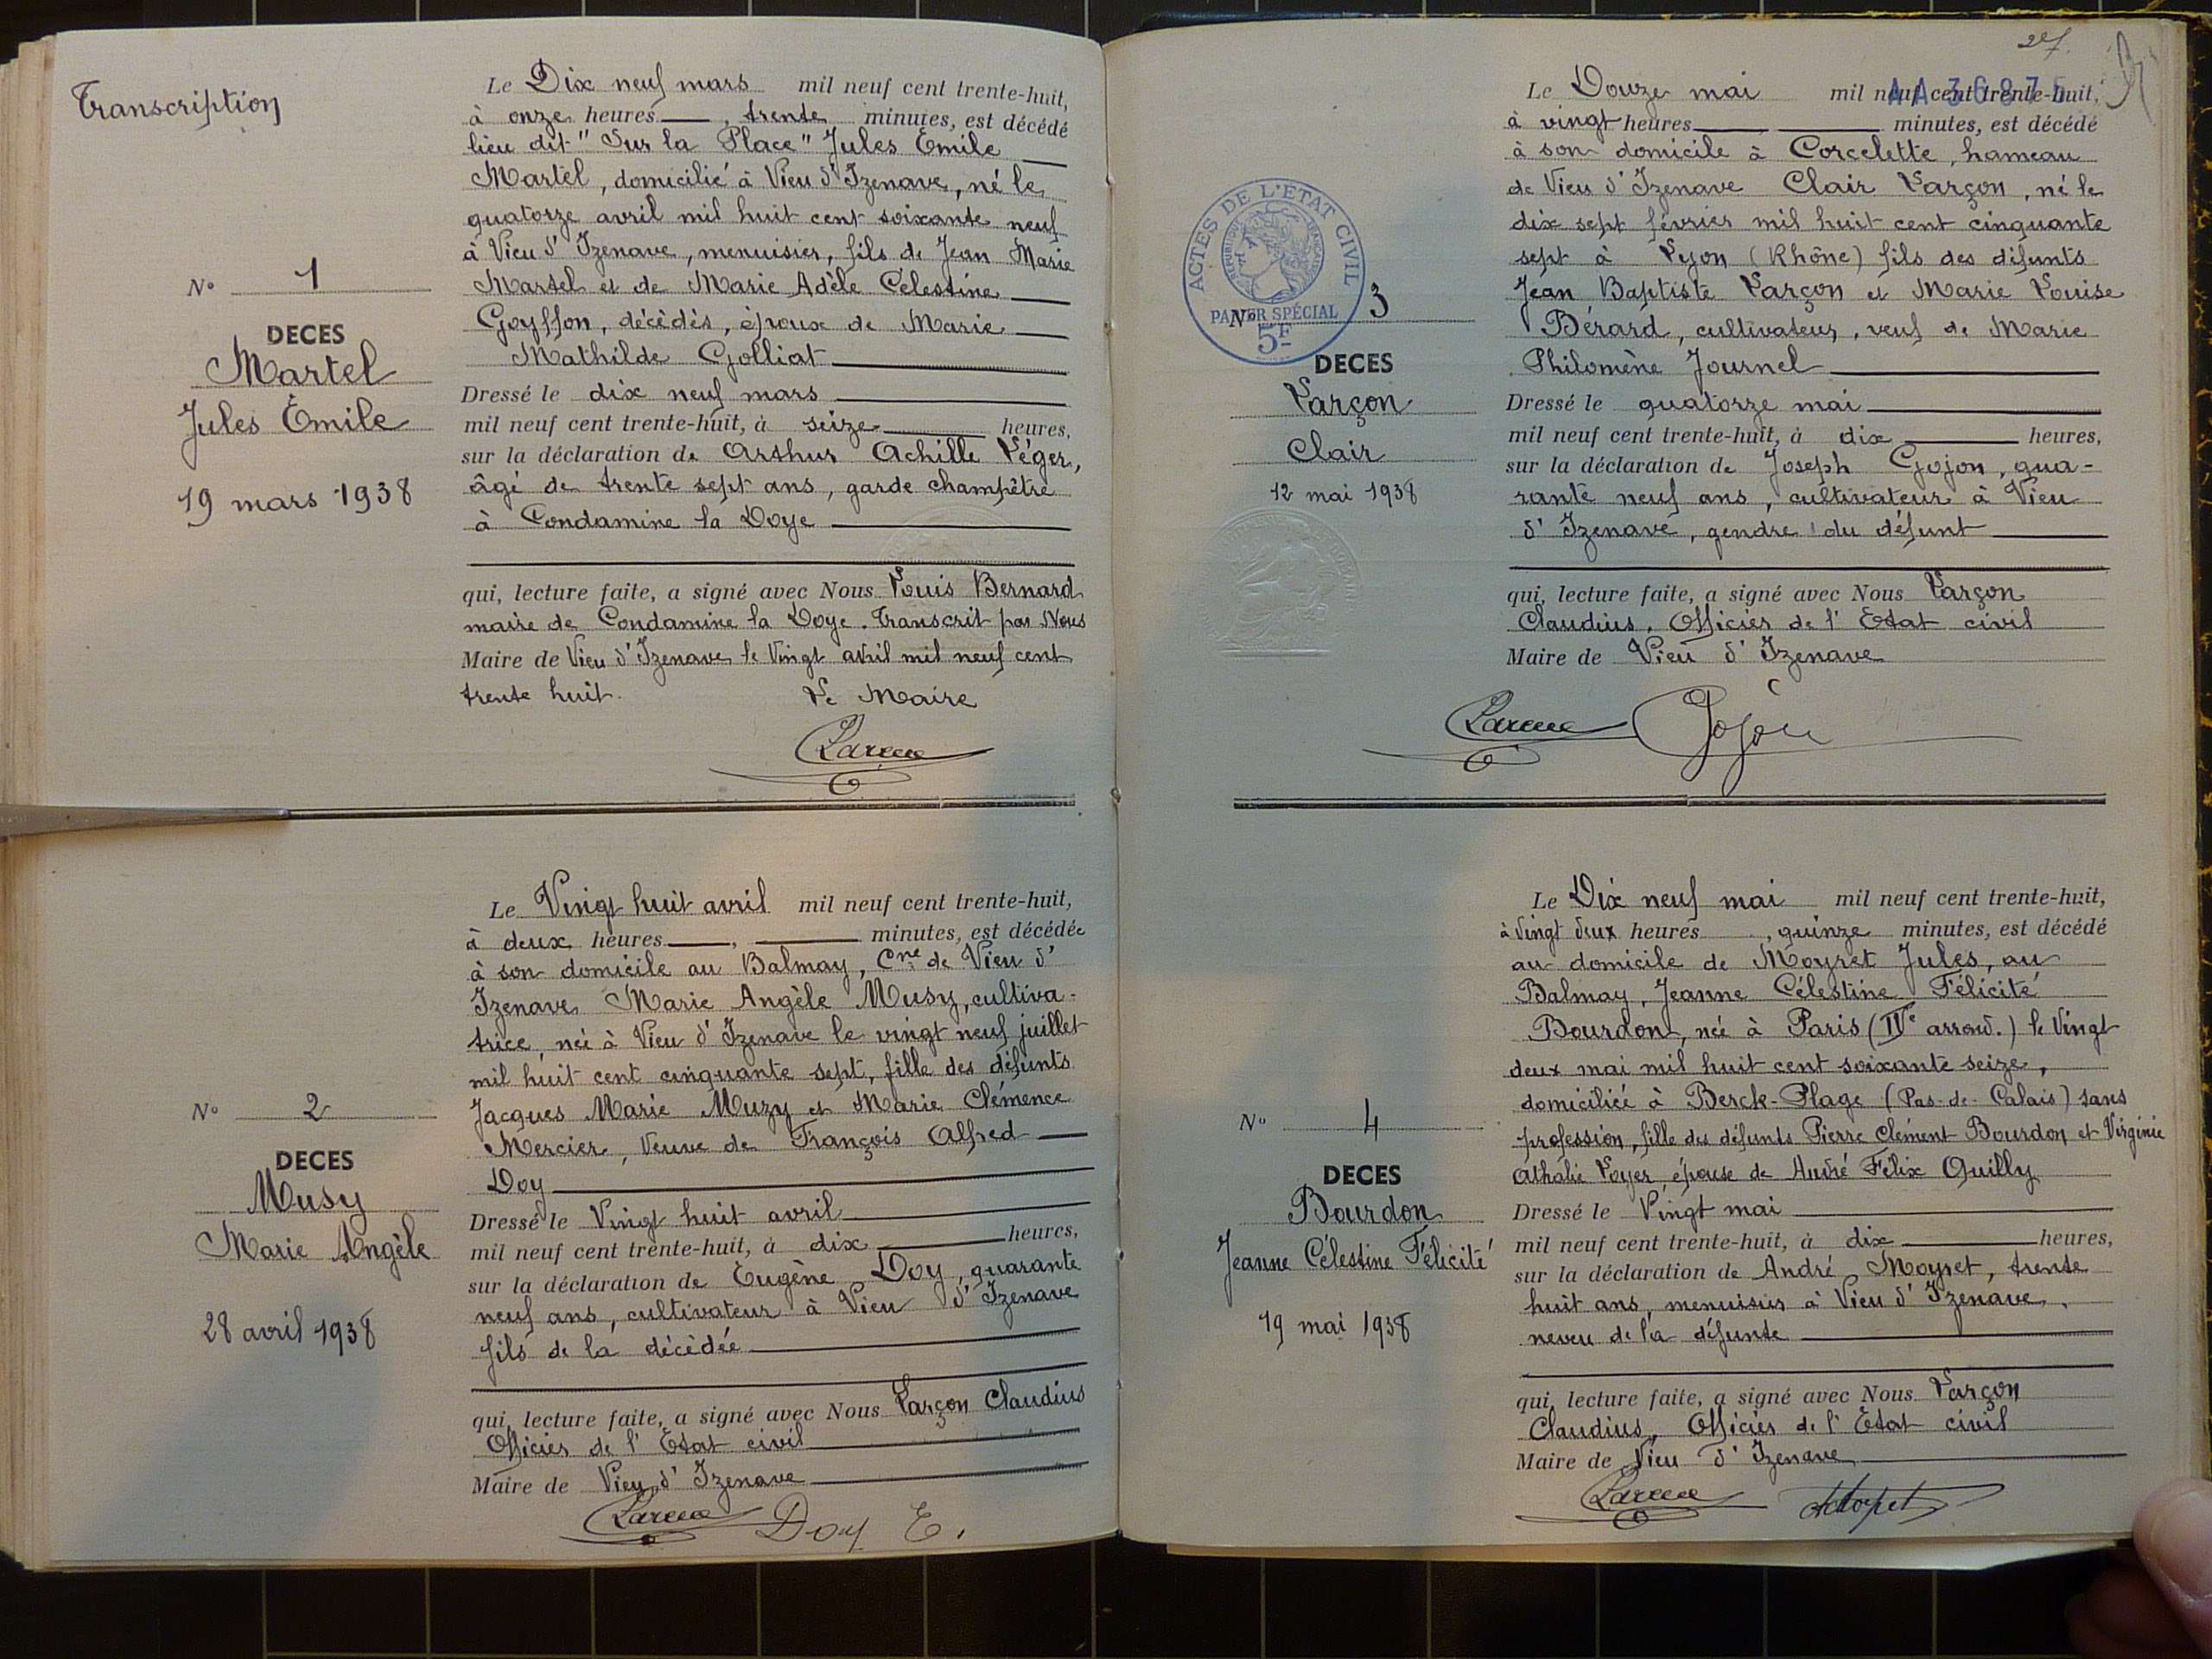 Transcription
Nº 1
DECES
Martel
Jules Émile
19 mars 1938
Le Dix neuf mars mil neuf cent trente-huit,
à onze heures, trente minutes, est décédé
lieu dit "Sur la Place" Jules Émile
Martel, domicilié à Vieu d'Izenave, né le
quatorze avril mil huit cent soixante neuf
à Vieu d'Izenave, menuisier, fils de Jean Marie
Martel et de Marie Adèle Célestine
Goyffon, décédés, époux de Marie
Mathilde Golliat
Dressé le dix neuf mars
mil neuf cent trente-huit, à seize heures,
sur la déclaration de Arthur Achille Léger,
âgé de trente sept ans, garde champêtre
à Condamine la Doye
qui, lecture faite, a signé avec Nous Louis Bernard
maire de Condamine la Doye. Transcrit par Nous
Maire de Vieu d'Izenave le Vingt avril mil neuf cent
trente huit. Le Maire
Nº 2
DECES
Musy
Marie Angèle
28 avril 1938
Le Vingt huit avril mil neuf cent trente-huit,
à deux heures, minutes, est décédée
à son domicile au Balmay, Cne de Vieu d'
Izenave Marie Angèle Musy, cultiva-
trice, née à Vieu d'Izenave le vingt neuf juillet
mil huit cent cinquante sept, fille des défunts
Jacques Marie Muzy et Marie Clémence
Mercier, Veuve de François Alfred
Doy
Dressé le Vingt huit avril
mil neuf cent trente-huit, à dix heures,
sur la déclaration de Eugène Doy, quarante
neuf ans, cultivateur à Vieu d'Izenave
fils de la décédée
qui, lecture faite, a signé avec Nous Larçon Claudius
Officier de l'État civil
Maire de Vieu d'Izenave
Doy E.
AA 3687
ACTES DE L'ETAT CIVIL
REPUBLIQUE FRANÇAISE
PAPIER SPÉCIAL
5F
Nº 3
DECES
Larçon
Clair
12 mai 1938
Le Douze mai mil neuf cent trente-huit,
à vingt heures minutes, est décédé
à son domicile à Corcelette, hameau
de Vieu d'Izenave Clair Larçon, né le
dix sept février mil huit cent cinquante
sept à Lyon (Rhône) fils des défunts
Jean Baptiste Larçon et Marie Louise
Bérard, cultivateur, veuf de Marie
Philomène Journel
Dressé le quatorze mai
mil neuf cent trente-huit, à dix heures,
sur la déclaration de Joseph Gojon, qua-
rante neuf ans, cultivateur à Vieu
d'Izenave, gendre du défunt
qui, lecture faite, a signé avec Nous Larçon
Claudius, Officier de l'Etat civil
Maire de Vieu d'Izenave
Gojon
Nº 4
DECES
Bourdon
Jeanne Célestine Félicité
19 mai 1938
Le Dix neuf mai mil neuf cent trente-huit,
à Vingt deux heures, quinze minutes, est décédé
au domicile de Moyret Jules, au
Balmay, Jeanne Célestine Félicité
Bourdon, née à Paris (IVe arrond.) le Vingt
deux mai mil huit cent soixante seize,
domiciliée à Berck-Plage (Pas-de-Calais) sans
profession, fille des défunts Pierre Clément Bourdon et Virginie
Athalie Loyer, épouse de André Félix Quilly
Dressé le Vingt mai
mil neuf cent trente-huit, à dix heures,
sur la déclaration de André Moyret, trente
huit ans, menuisier à Vieu d'Izenave,
neveu de la défunte
qui, lecture faite, a signé avec Nous Larçon
Claudius, Officier de l'État civil
Maire de Vieu d'Izenave